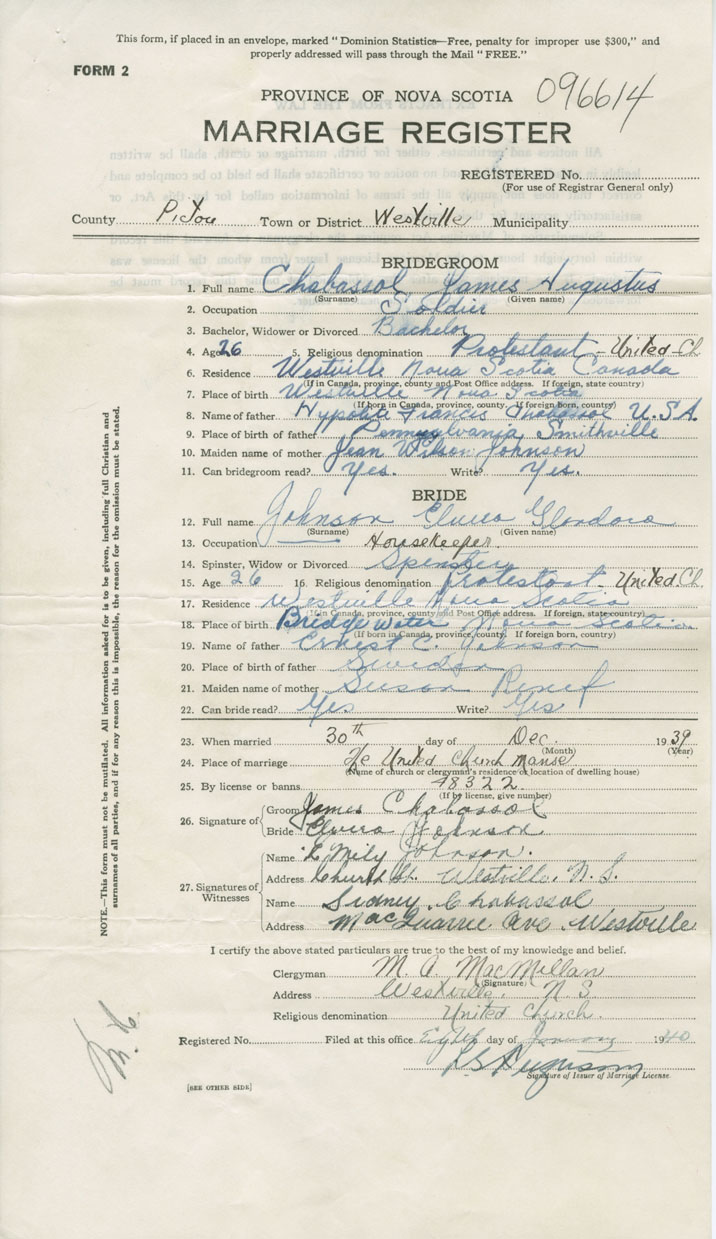 This form, if placed in an envelope, marked “Dominion Statistics—Free, penalty for improper use $300,” and
properly addressed will pass through the Mail “FREE.”
FORM 2
PROVINCE OF NOVA SCOTIA 096614
MARRIAGE REGISTER
REGISTERED No.
(For use of Registrar General only)
County Pictou Town or District Westville Municipality
BRIDEGROOM
1. Full name Chabassol James Augustus
(Surname) (Given name)
2. Occupation Soldier
3. Bachelor, Widower or Divorced Bachelor
4. Age 26 5. Religious denomination Protestant United Ch
6. Residence Westville Nova Scotia Canada
(If in Canada, province, county and Post Office address. If foreign, state country)
7. Place of birth Westville Nova Scotia
(If born in Canada, province, county. If foreign born, country)
8. Name of father Hypolite Francis Chabassol U.S.A.
9. Place of birth of father Pennsylvania Smithville
10. Maiden name of mother Jean Wilson Johnson
11. Can bridegroom read? Yes. Write? Yes.
BRIDE
12. Full name Johnson Elvira Glendora
(Surname) (Given name)
13. Occupation Housekeeper
14. Spinster, Widow or Divorced Spinster
15. Age 26 16. Religious denomination Protestant. United Ch.
17. Residence Westville Nova Scotia
(If in Canada, province, county and Post Office address. If foreign, state country)
18. Place of birth Bridgewater Nova Scotia
(If born in Canada, province, county. If foreign born, country)
19. Name of father Ernest C. Johnson
20. Place of birth of father Sweden
21. Maiden name of mother Susan
22. Can bride read? Yes Write? Yes
23. When married 30th day of Dec. 1939
(Month) (Year)
24. Place of marriage The United Church Manse
(Name of church or clergyman's residence or location of dwelling house)
25. By license or banns 48322
(If by license, give number)
26. Signature of
Groom James Chabassol
Bride Elvira Johnson
27. Signatures of Witnesses
Name Emily Johnson.
Address Church St. Westville. N.S.
Name Sidney Chabassol
Address MacQuarrie Ave. Westville
I certify the above stated particulars are true to the best of my knowledge and belief.
Clergyman M. A. MacMillan
(Signature)
Address Westville, N.S.
Religious denomination United Church.
Registered No. Filed at this office Eighth day of January 1940
Signature of Issuer of Marriage License
[SEE OTHER SIDE]
NOTE.—This form must not be mutilated. All information asked for is to be given, including full Christian and
surnames of all parties, and if for any reason this is impossible, the reason for the omission must be stated.